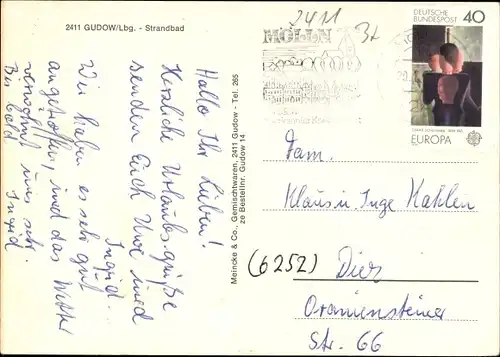 2411 GUDOW/Lbg. - Strandbad
Hallo Ihr Lieben!
Herzliche Urlaubsgrüße
senden Euch Uwe und
Ingrid.
Wir haben es sehr gut
angetroffen, und das Wetter
verwöhnt uns sehr.
Bis bald
Ingrid
Meincke & Co., Gemischtwaren, 2411 Gudow - Tel. 265
ze Bestellnr. Gudow 14
2411
MÖLLN
DEUTSCHE
BUNDESPOST
40
EUROPA
Fam.
Klaus u. Inge Kahlen
(6252) Diez
Oraniensteiner
Str. 66